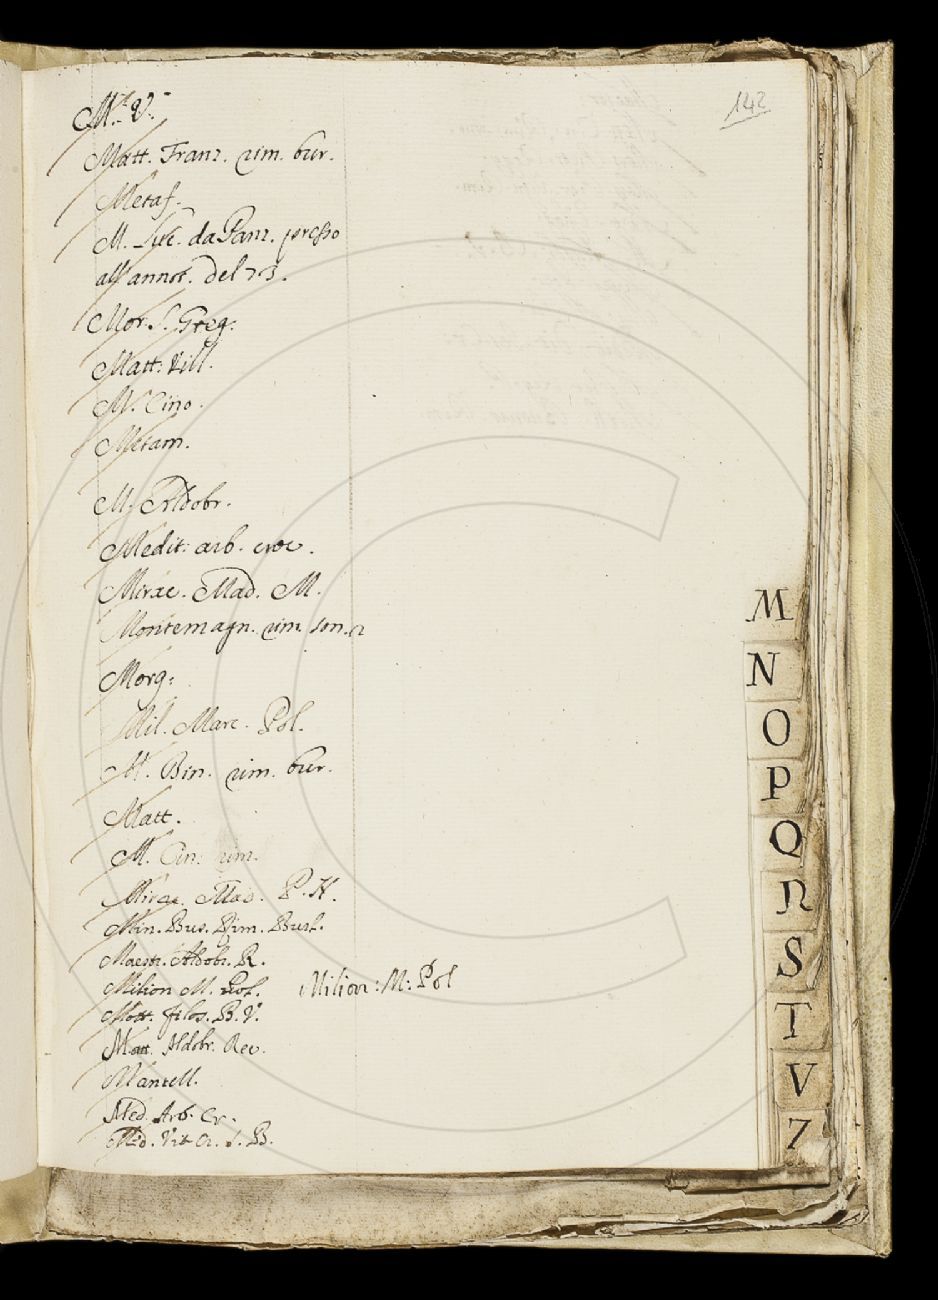 142
M.ª V.
Matt. Franz. rim. bur.
Metaf.
M. da Panz. presso
all'annot. del 73.
Mor. S. Greg.
Matt. Vill.
M. Cino.
Metam.
M. Aldobr.
Medit. arb. croc.
Mirac. Mad. M.
Montemagn. rim. son. 2
Morg:
Mil. Marc. Pol.
M. Bin. rim. bur.
Matt.
M. Cin: rim.
Mirac. Mad. P. N.
Min. Bus. Burl.
Maestr. Aldobr. R.
Milion M. Pol. Milion: M: Pol
Mott. filos. B. V.
Matt. Aldobr. Rec.
Mantell.
Med. Arb. Cr.
Med. Vit. Cr. S. B.
M
N
O
P
Q
R
S
T
V
Z